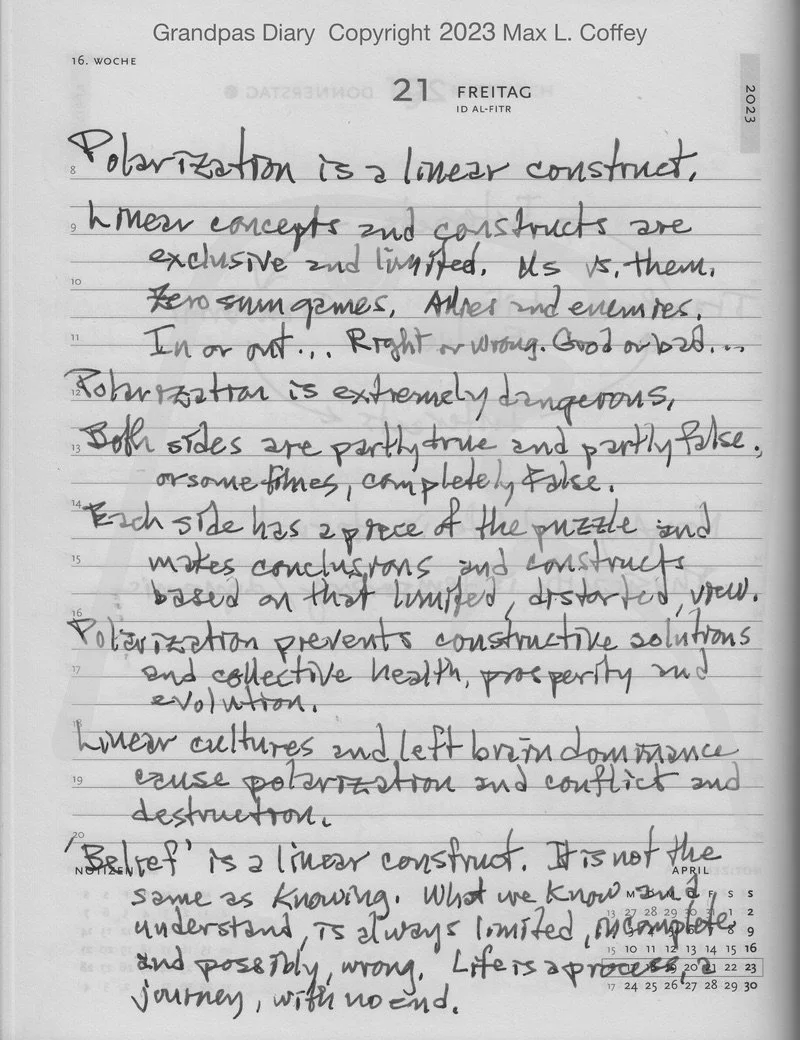 Grandpas Diary Copyright 2023 Max L. Coffey
16. WOCHE
21 FREITAG
ID AL-FITR
2023
8 Polarization is a linear construct.
9 Linear concepts and constructs are
exclusive and limited. Us vs. them.
10 Zero sum games. Allies and enemies.
11 In or out... Right or wrong. Good or bad...
12 Polarization is extremely dangerous.
13 Both sides are partly true and partly false.,
or sometimes, completely False.
14 Each side has a piece of the puzzle and
15 makes conclusions and constructs
based on that limited, distorted, view.
16 Polarization prevents constructive solutions
17 and collective health, prosperity and
evolution.
18 Linear cultures and left brain dominance
19 cause polarization and conflict and
destruction.
20 'Belief' is a linear construct. It is not the
NOTIZEN APRIL
same as Knowing. What we Know and
understand, is always limited, incomplete
and possibly, wrong. Life is a process, a
journey, with no end.
M D M D F S S
13 27 28 29 30 31 1 2
8 9
15 10 11 12 13 14 15 16
20 21 22 23
17 24 25 26 27 28 29 30